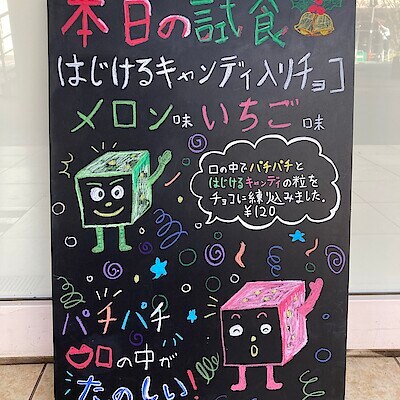 本日の試食
はじけるキャンディ入りチョコ
メロン味 いちご味
口の中でパチパチと
はじけるキャンディの粒を
チョコに練り込みました。
¥120
パチパチ
口の中が
たのしい!